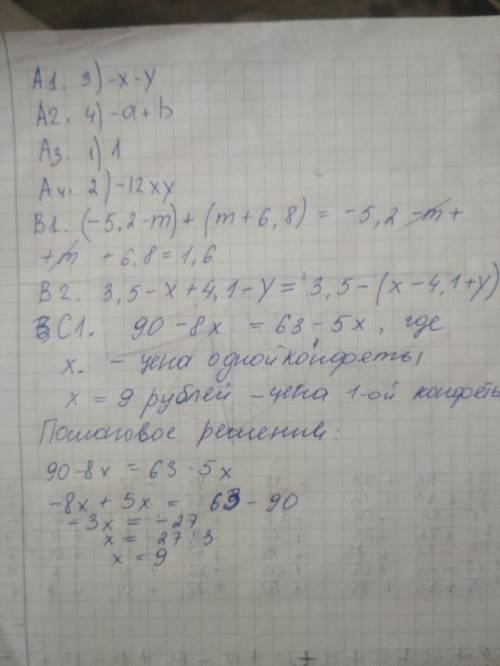 А1. 3) -x-y
А2. 4) -a+b
А3. 1) 1
А4. 2) -12xy
В1. (-5,2-m)+(m+6,8) = -5,2 -m+
+m + 6,8 = 1,6
В2. 3,5-x+4,1-y = 3,5-(x-4,1+y)
С1. 90-8x = 63-5x, где
x. - цена одной конфеты
x = 9 рублей - цена 1-ой конфеты
Пошаговое решение:
90-8x = 63-5x
-8x+5x = 63-90
-3x = -27
x = 27:3
x = 9